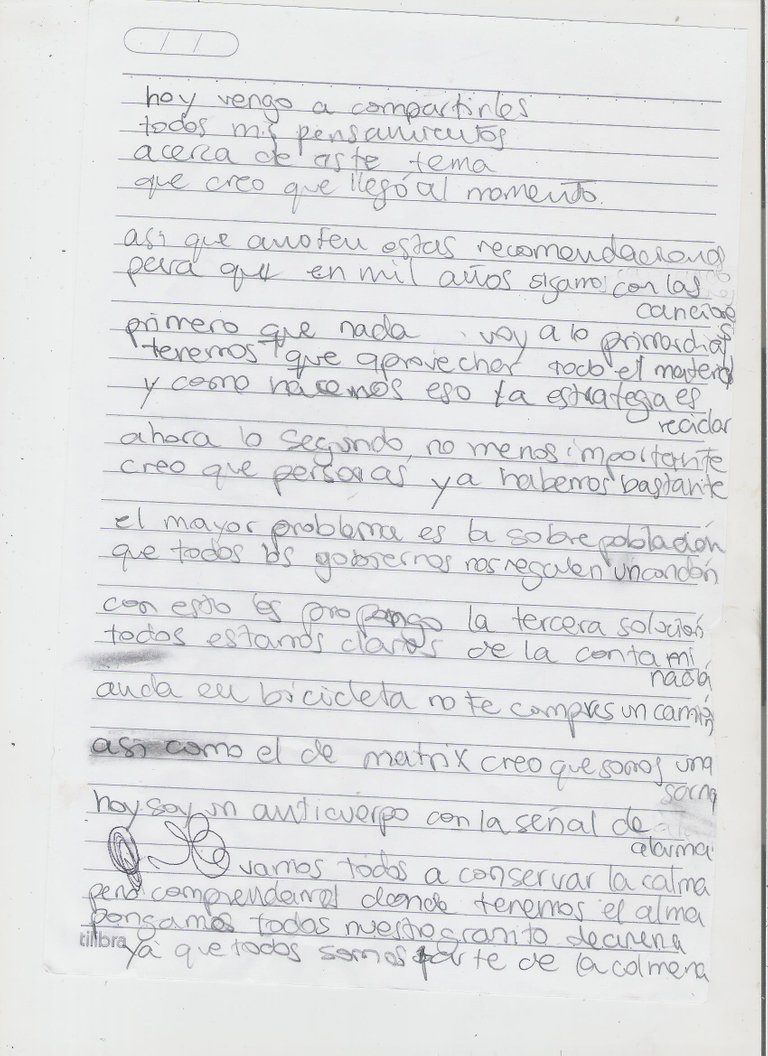 hoy vengo a compartirles
todos mis pensamientos
acerca de este tema
que creo que llegó al momento.
asi que anoten estas recomendacions
para que en mil años sigamos con las
canciones
primero que nada. voy a lo primordial
tenemos que aprovechar todo el material
y como hacemos eso la estrategia es
reciclar
ahora lo segundo, no menos importante
creo que personas ya habemos bastante
el mayor problema es la sobrepoblación
que todos los gobiernos nos regalen un condón
con esto les propongo la tercera solución
todos estamos claros de la contami
nación
anda en bicicleta no te compres un camión
asi como el de matrix creo que somos una
sarna
hoy soy un anticuerpo con la señal de
alarma
vamos todos a conservar la calma
pero comprendamos donde tenemos el alma
pongamos todos nuestro granito de arena
tilibra
ya que todos somos parte de la colmena